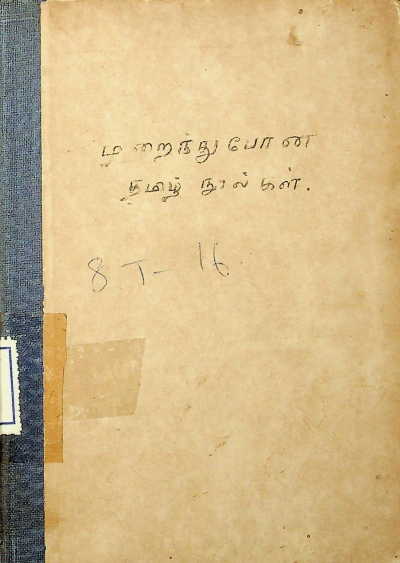 மறைந்துபோன
தமிழ் நூல்கள்.
8T-16